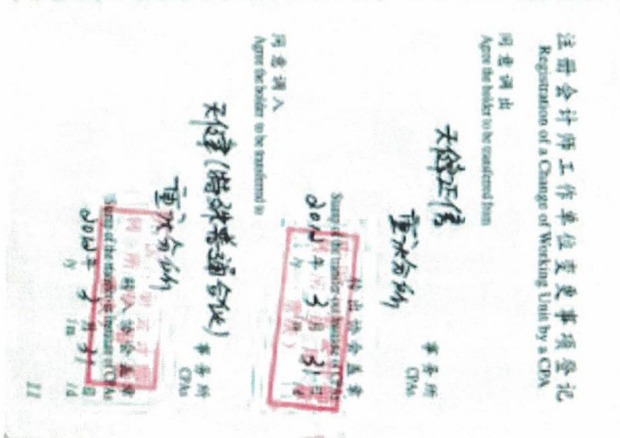 注册会计师工作单位变更事项登记
Registration of a Change of Working Unit by a CPA
同意调出
Agree the holder to be transferred from
天健正信
重庆分所
事务所
CPAs
转出协会盖章
Stamp of the transfer-out Institute of CPAs
2012年3月31日
/y /m /d
同意调入
Agree the holder to be transferred to
天健(特殊普通合伙)
重庆分所
事务所
CPAs
转入协会盖章
Stamp of the transfer-in Institute of CPAs
2012年3月31日
/y /m /d
11